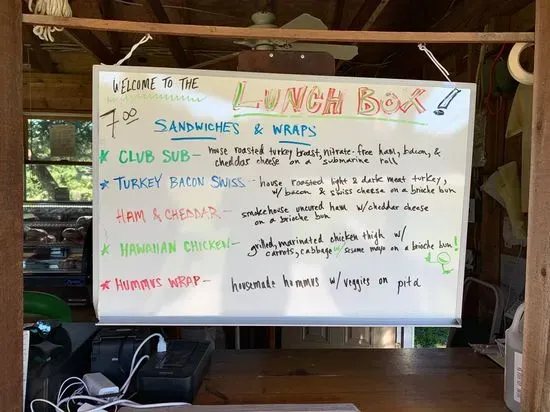 WELCOME TO THE
LUNCH BOX!
7.00
SANDWICHES & WRAPS
CLUB SUB - house roasted turkey breast, nitrate-free ham, bacon, &
cheddar cheese on a submarine roll
TURKEY BACON SWISS - house roasted light & dark meat turkey,
w/ bacon & swiss cheese on a brioche bun
HAM & CHEDDAR - smokehouse uncured ham w/ cheddar cheese
on a brioche bun
HAWAIIAN CHICKEN - grilled, marinated chicken thigh w/
carrots, cabbage w/ sesame mayo on a brioche bun!
HUMMUS WRAP - housemade hummus w/ veggies on pita